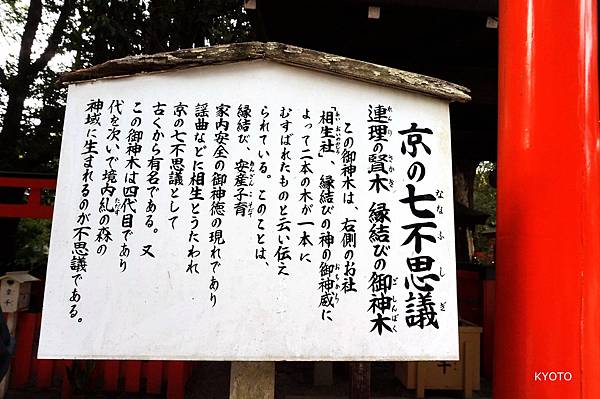 京の七不思議
ななふしぎ
連理の賢木 縁結びの御神木
れんり さかき ごしんぼく
この御神木は、右側のお社
「相生社」、縁結びの神の御神威に
よって二本の木が一本に
むすばれたものと云い伝え
られている。このことは、
縁結び、安産子育
家内安全の御神徳の現れであり
謡曲などに相生とうたわれ
京の七不思議として
古くから有名である。又
この御神木は四代目であり
代を次いで境内糺の森の
神域に生まれるのが不思議である。
KYOTO